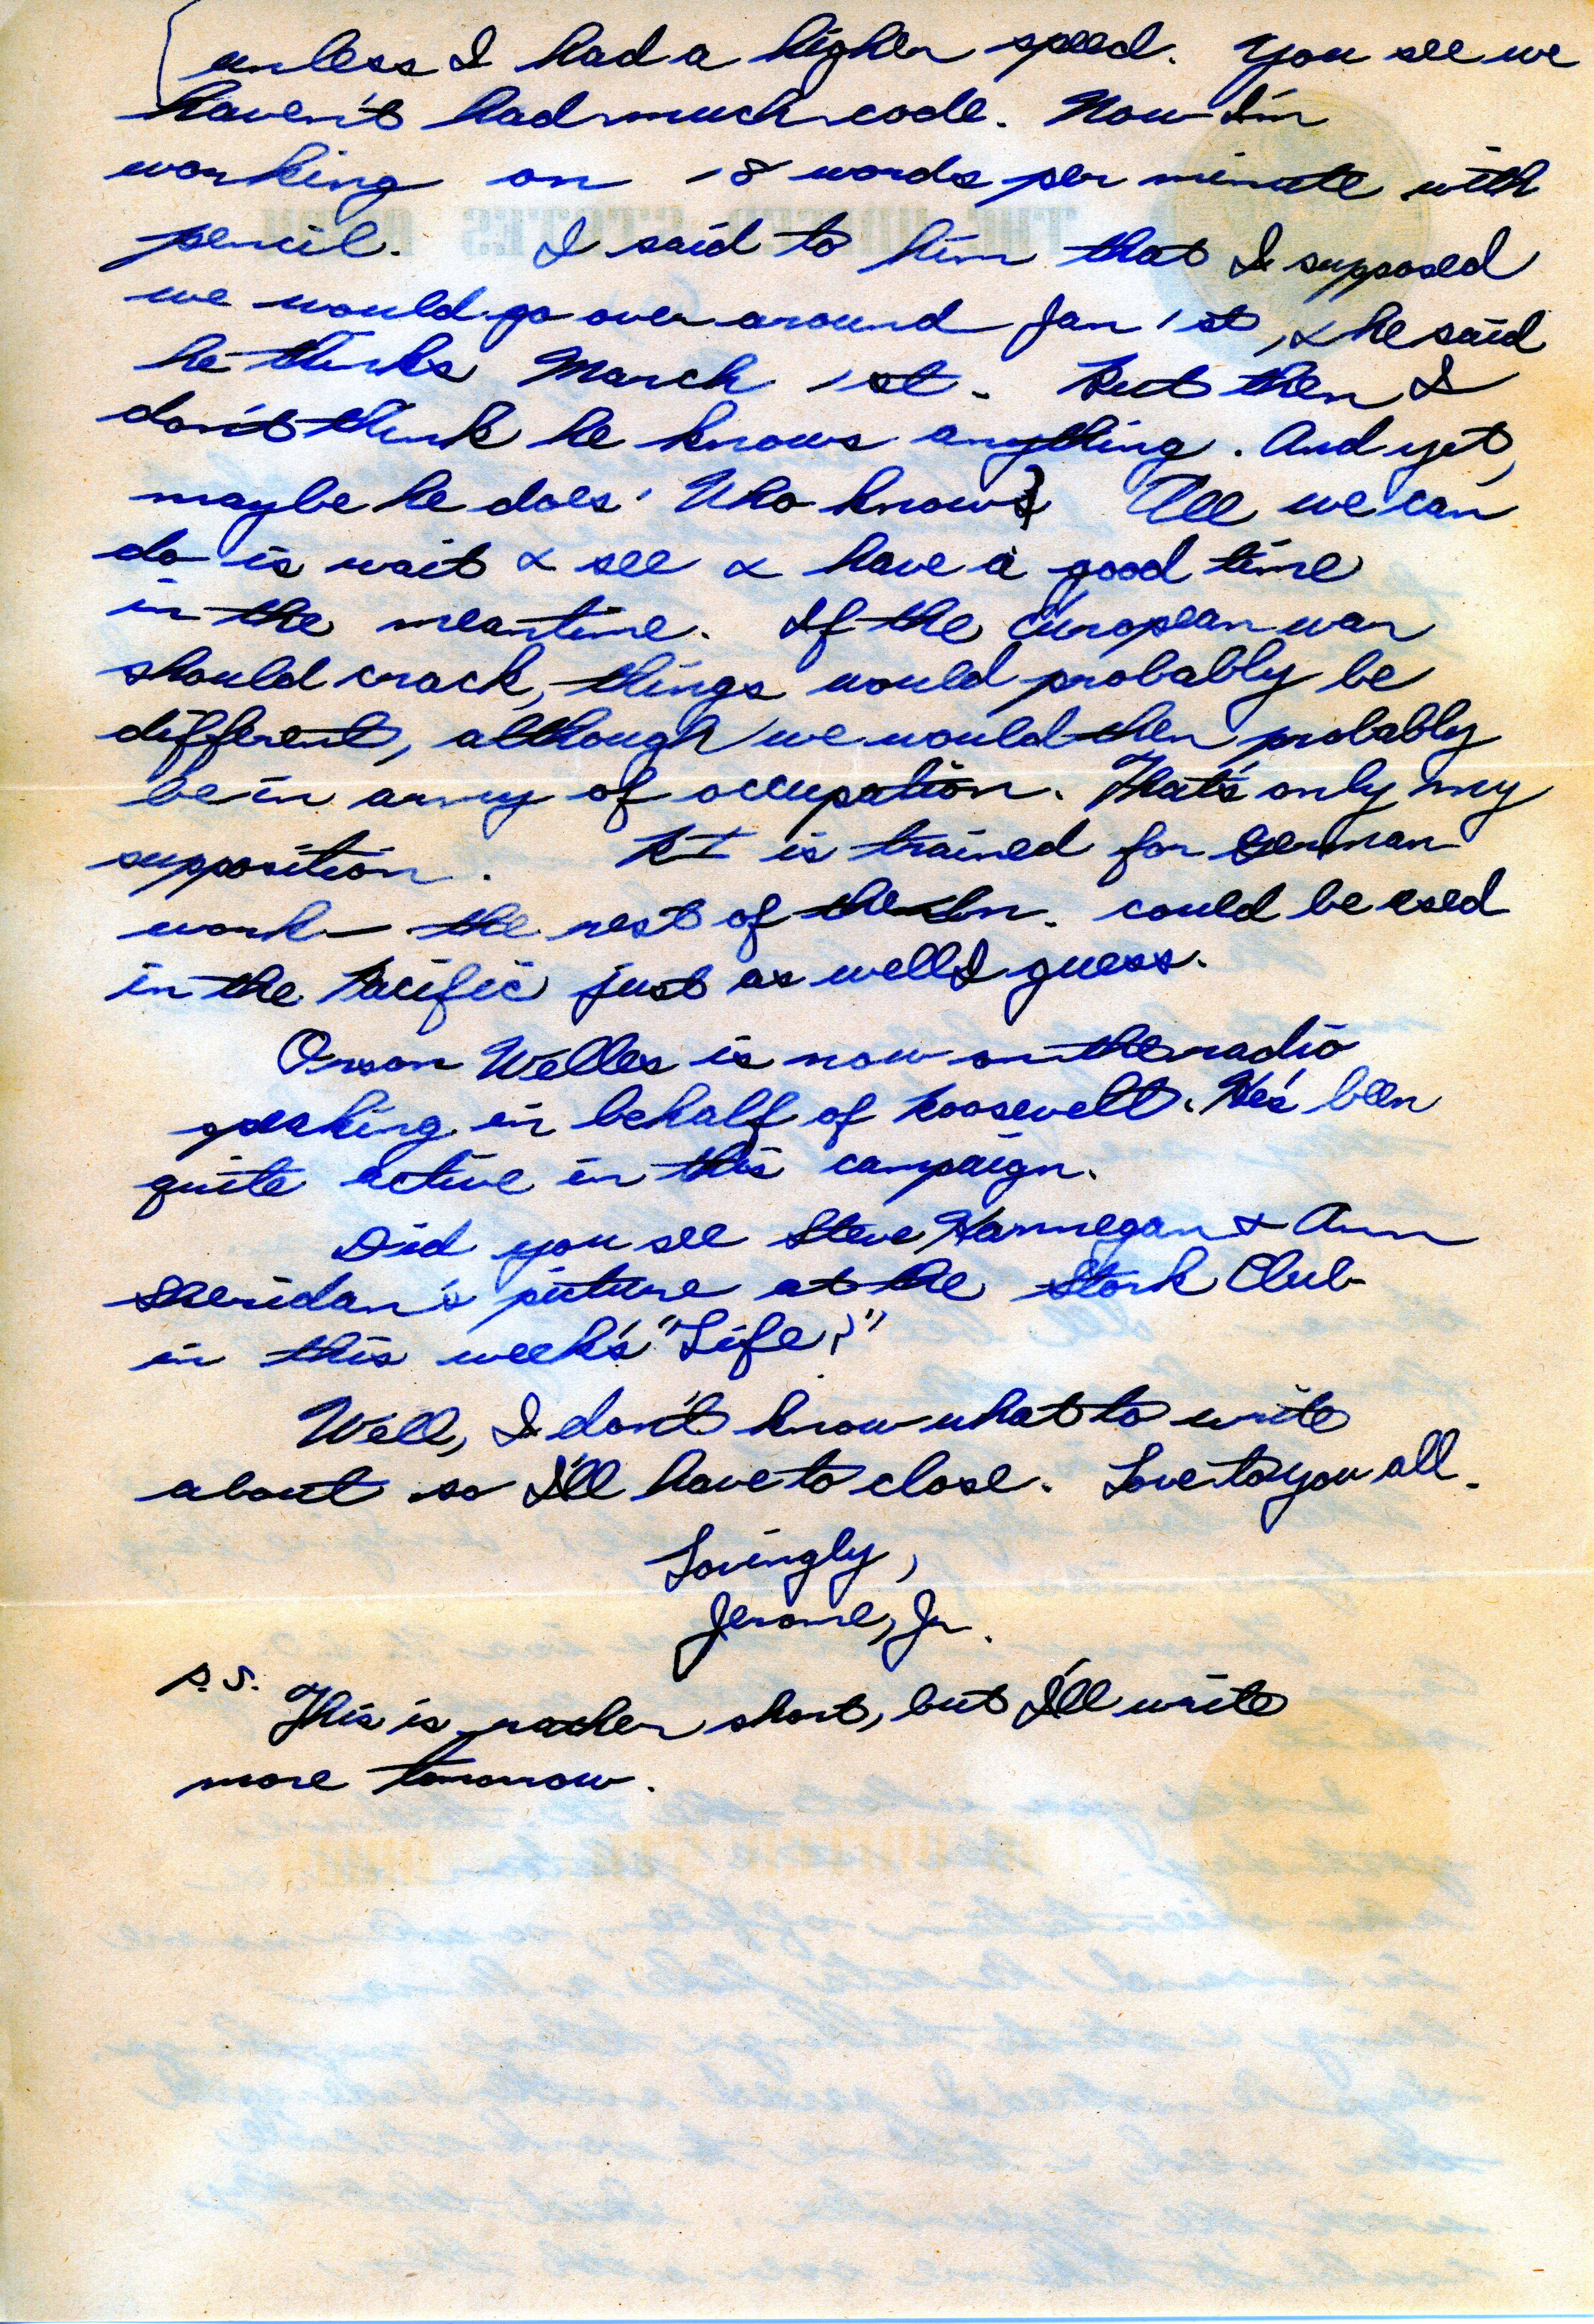 unless I had a higher speed. You see we
haven't had much code. Now I'm
working on 18 words per minute with
pencil. I said to him that I supposed
we would go over around Jan 1st, & he said
he thinks March 1st. But then I
don't think he knows anything. And yet,
maybe he does. Who knows} All we can
do is wait & see & have a good time
in the meantime. If the European war
should crack, things would probably be
different, although we would then probably
be in army of occupation. That's only my
supposition. is trained for German
work — the rest of the could be used
in the Pacific just as well I guess.
Orson Welles is now on the radio
speaking in behalf of Roosevelt. He's been
quite active in this campaign.
Did you see Steve Hannegan & Ann
Sheridan's picture at the Stork Club
in this week's "Life?"
Well, I don't know what to write
about so I'll have to close. Love to you all.
Lovingly,
Jerome, Jr.
P.S.
This is rather short, but I'll write
more tomorrow.